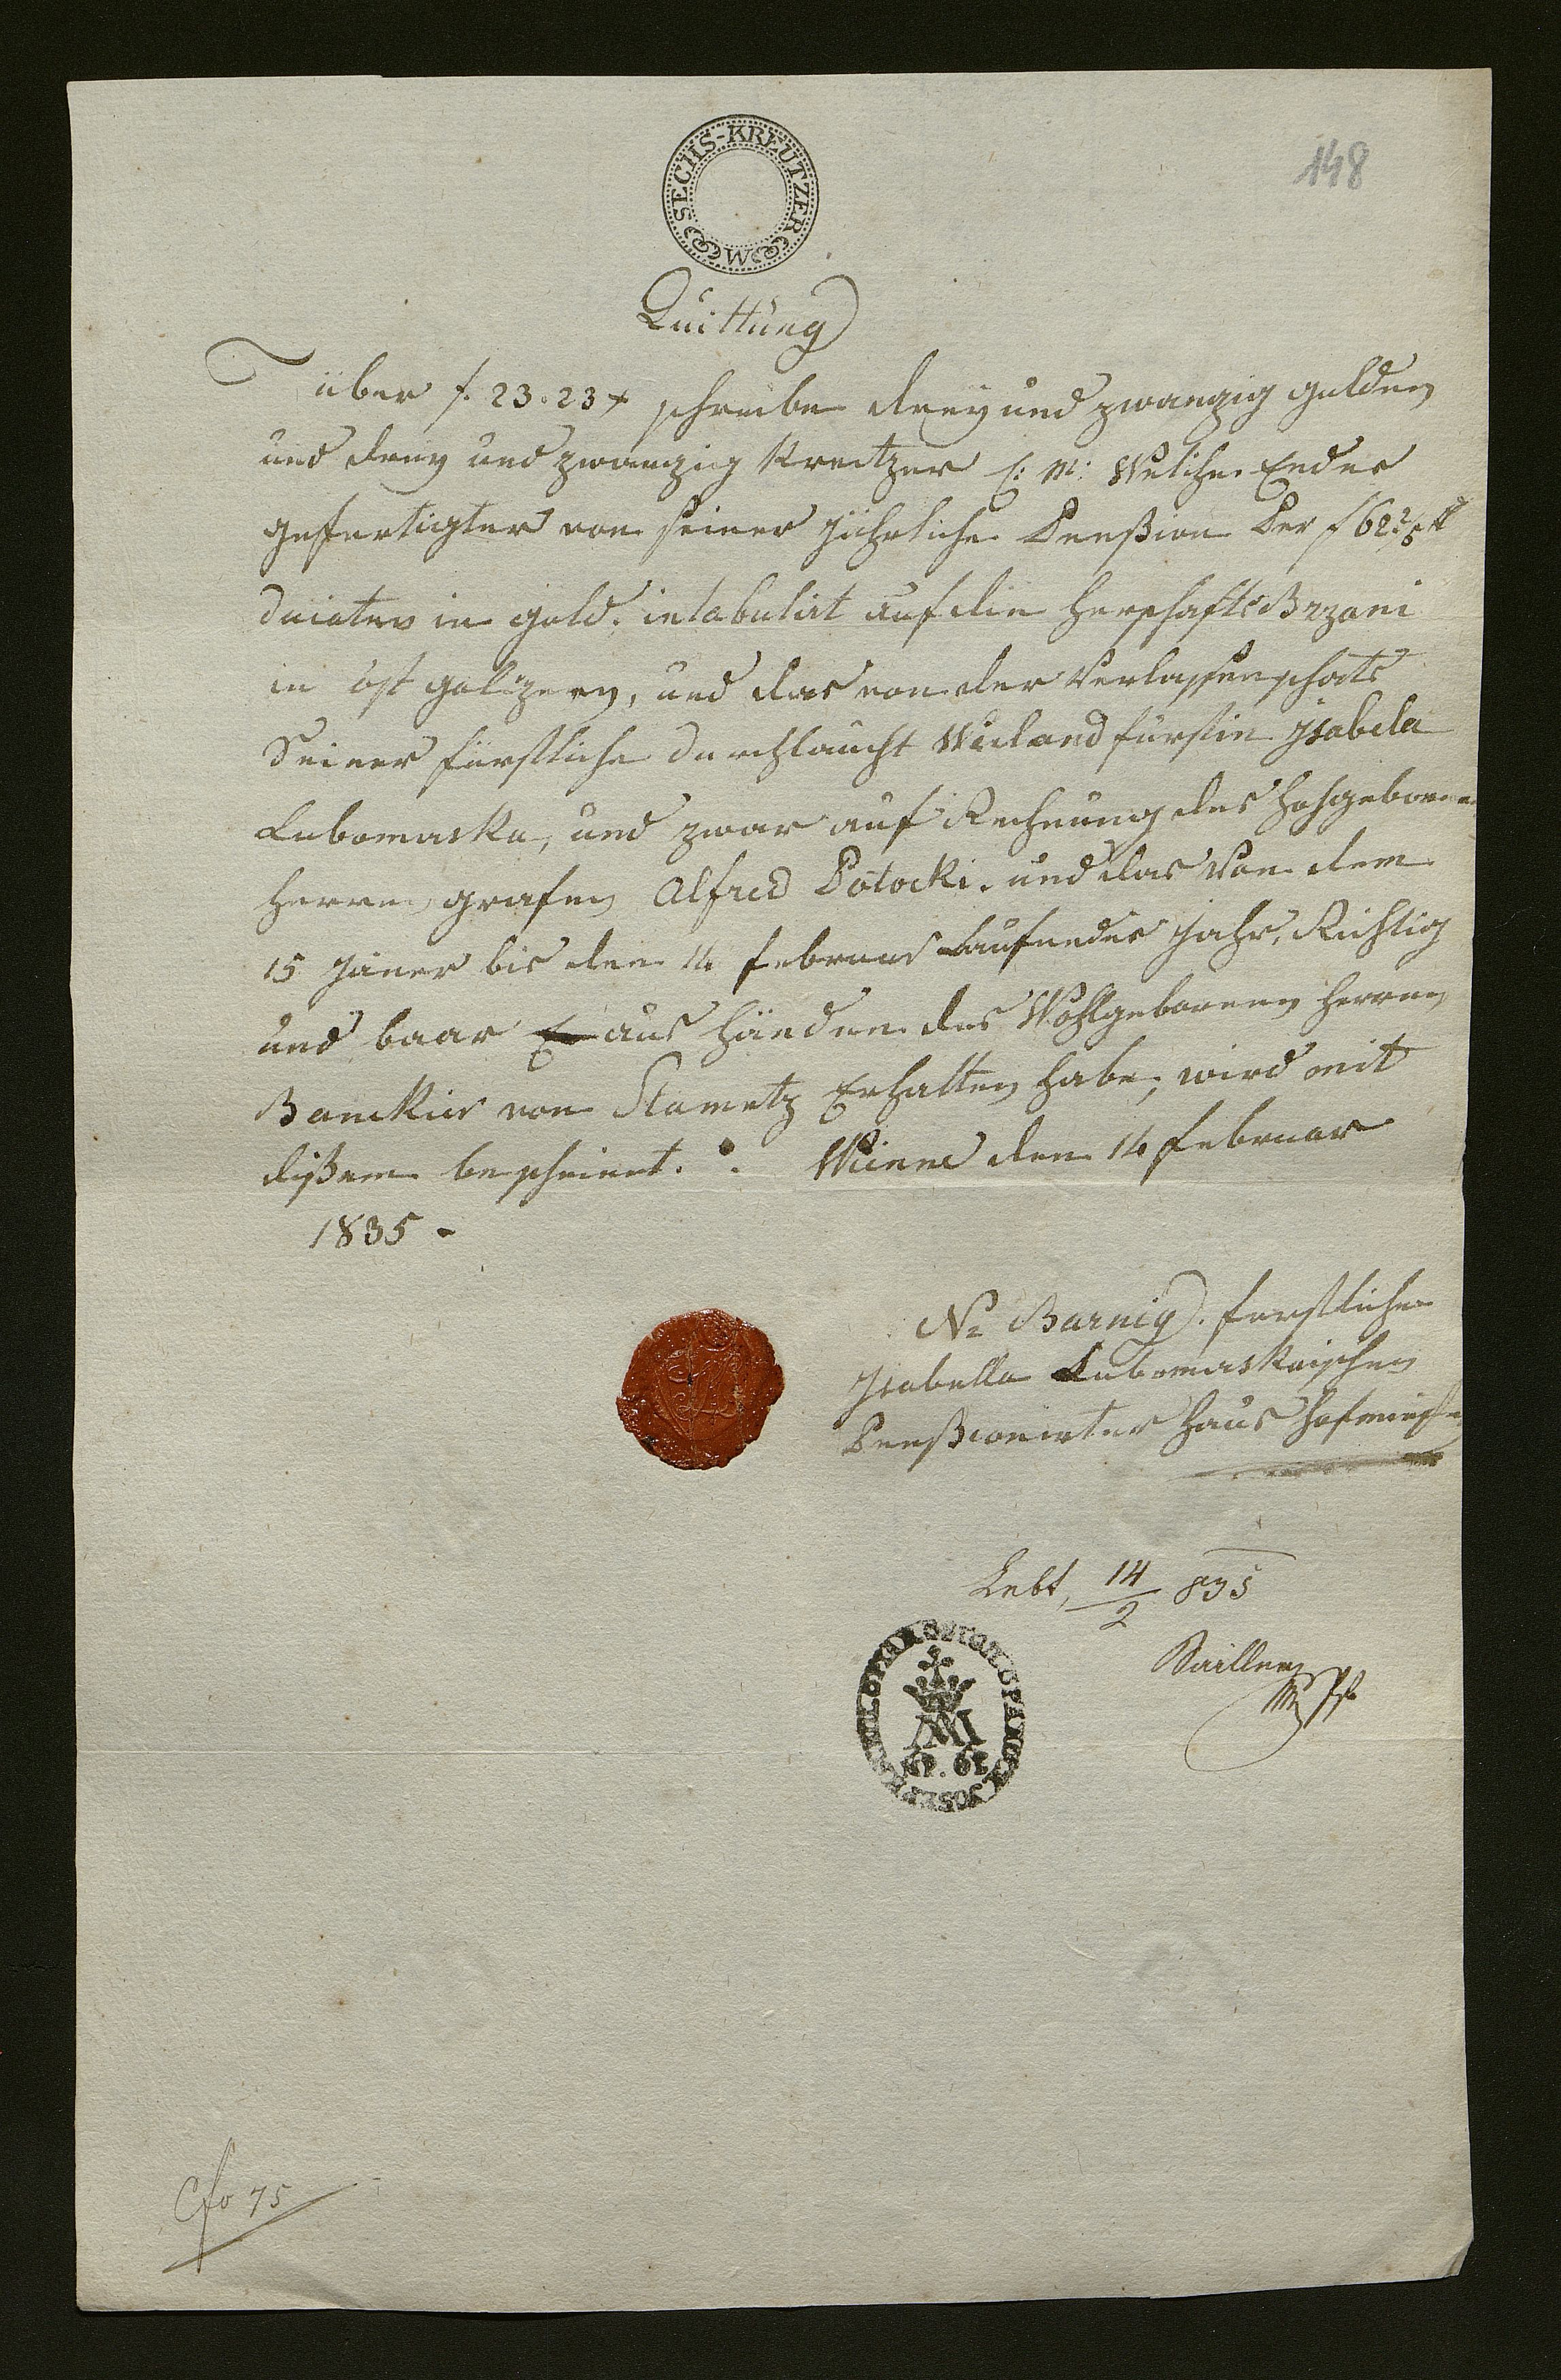 148
SECHS-KREUTZER
W
Quittung
über f. 23.23 x schreibe drey und zwanzig gulden
und drey und zwanzig Kreitzer C: M: Welche Endes
gefertigter von seiner jährliche Penßion Per f 62 2/6
ducaten in gold. intabulirt auf die Herschafts Brzani
in ost galizien, und das von der Verlassenschafts
Seiner fürstliche durchlaucht Weiland fürstin Isabela
Lubomirska, und zwar auf Rechnung des Hochgeborenen
Herrn grafen Alfred Potocki. und das von dem
15 Jäner bis den 14 februar laufendes Jahr, Richtig
und baar aus händen des Wohlgebornen Herren
Banckier von Stametz Erhalten habe, wird mit
dißem bescheint. Wienn den 14 februar
1835 -
Nz Barnig. fürstlicher
Isabella Lubomirskaischen
Penßionirter Haus Hofmeister
Lebt, 14/2 835
Sailler
AM
Cfo 75